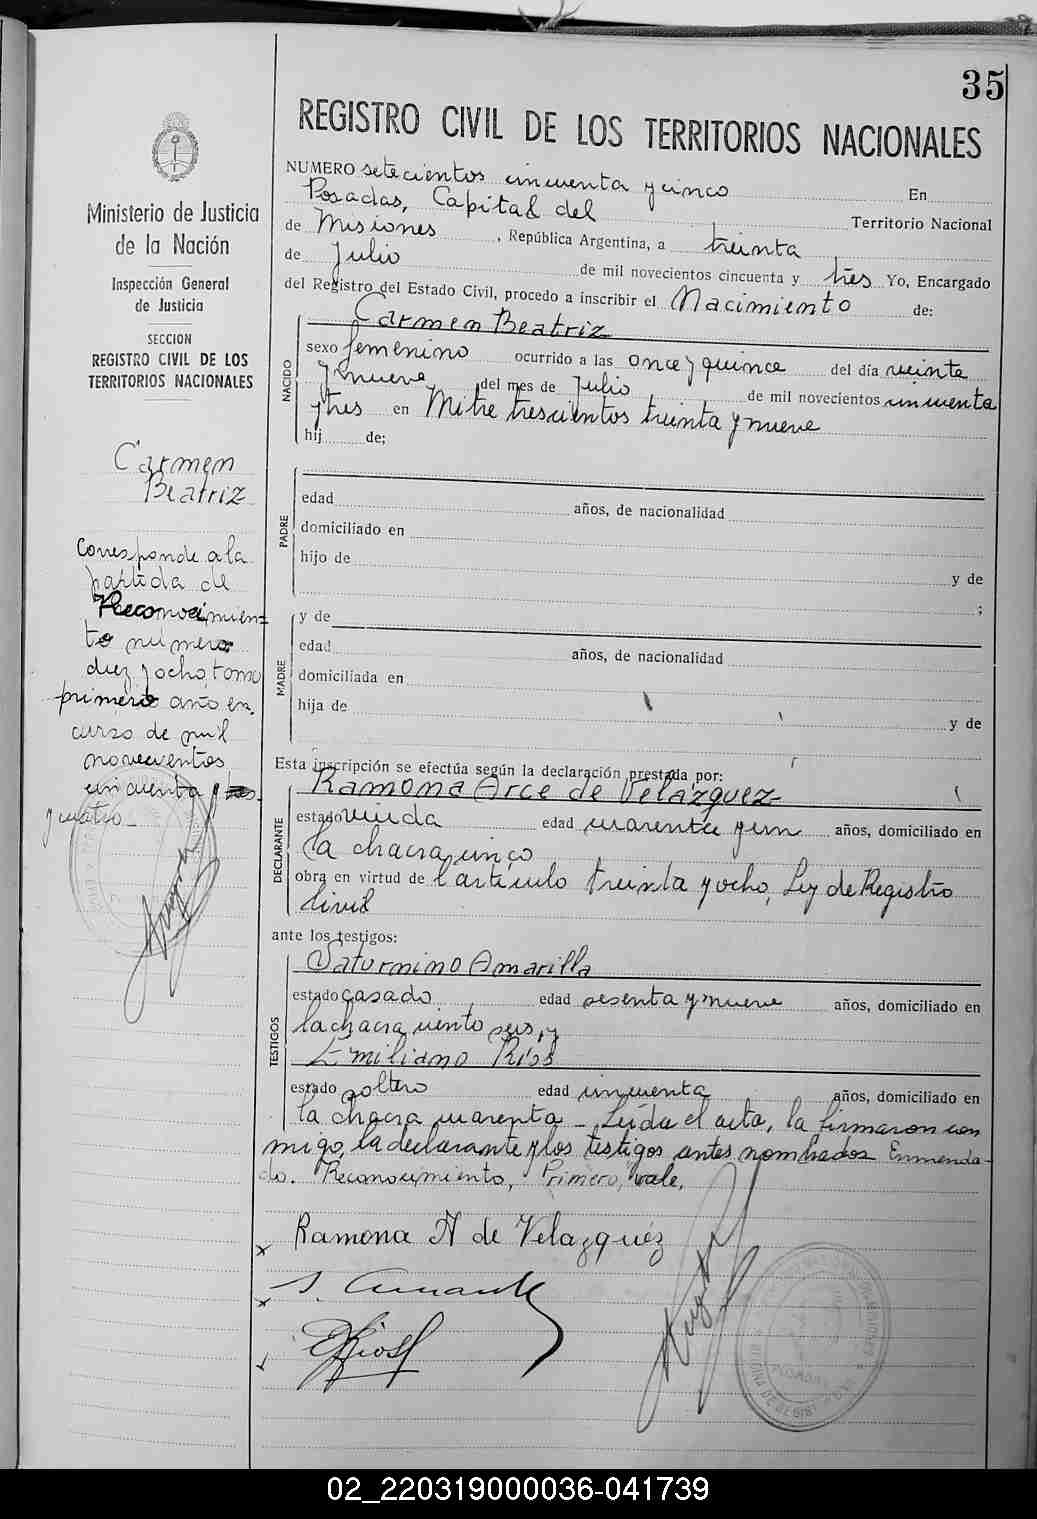 35
REGISTRO CIVIL DE LOS TERRITORIOS NACIONALES
Ministerio de Justicia
de la Nación
Inspección General
de Justicia
SECCION
REGISTRO CIVIL DE LOS
TERRITORIOS NACIONALES
Carmen
Beatriz
Corresponde a la
partida de
Reconocimien-
to numero
diez y ocho, tomo
primero año en
curso de mil
novecientos
cincuenta y tres
y cuatro
NUMERO setecientos cincuenta y cinco En
Posadas, Capital del Territorio Nacional
de Misiones, República Argentina, a treinta
de Julio de mil novecientos cincuenta y tres Yo, Encargado
del Registro del Estado Civil, procedo a inscribir el Nacimiento de:
NACIDO
Carmen Beatriz
sexo femenino ocurrido a las once y quince del día veinte
y nueve del mes de Julio de mil novecientos cincuenta
y tres en Mitre trescientos treinta y nueve
hij de;
PADRE
edad años, de nacionalidad
domiciliado en
hijo de
y de
;
MADRE
y de
edad años, de nacionalidad
domiciliada en
hija de
y de
Esta inscripción se efectúa según la declaración prestada por:
DECLARANTE
Ramona Arce de Velázquez
estado viuda edad cuarenta y un años, domiciliado en
la chacra cinco
obra en virtud de l artículo treinta y ocho, Ley de Registro
Civil
ante los testigos:
TESTIGOS
Saturnino Amarilla
estado casado edad sesenta y nueve años, domiciliado en
la chacra ciento seis, y
Emiliano Ríos
estado soltero edad cincuenta años, domiciliado en
la chacra cuarenta - Leída el acta, la firmaron con
migo, la declarante y los testigos antes nombrados Enmenda-
do. Reconocimiento, Primero, vale.
Ramona A de Velazquéz
ERios
POSADAS
02_220319000036-041739